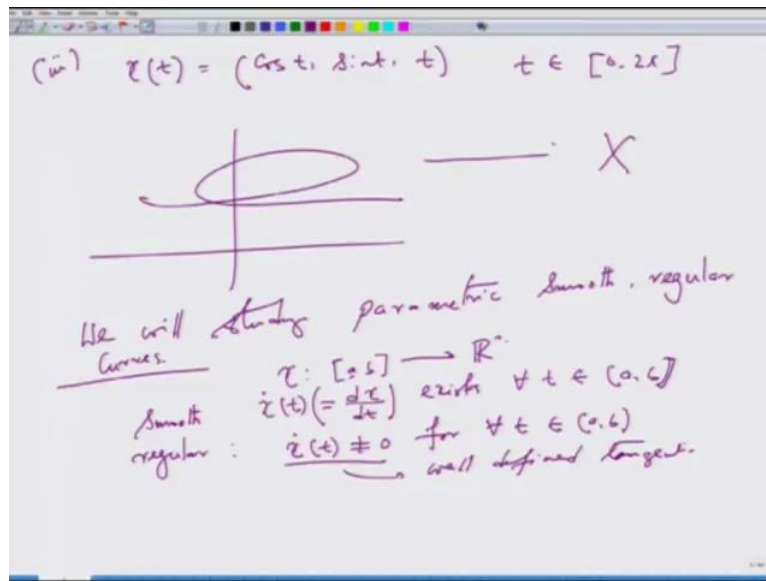 (iii) γ(t) = (Cos t, Sint, t) t ∈ [0, 2π]
X
We will study parametric smooth, regular
Curves.
γ: [a, b] → ℝⁿ.
Smooth γ̇(t) (= dγ/dt) exists ∀ t ∈ (a, b)
regular : γ̇(t) ≠ 0 for ∀ t ∈ (a, b)
→ well defined tangent.